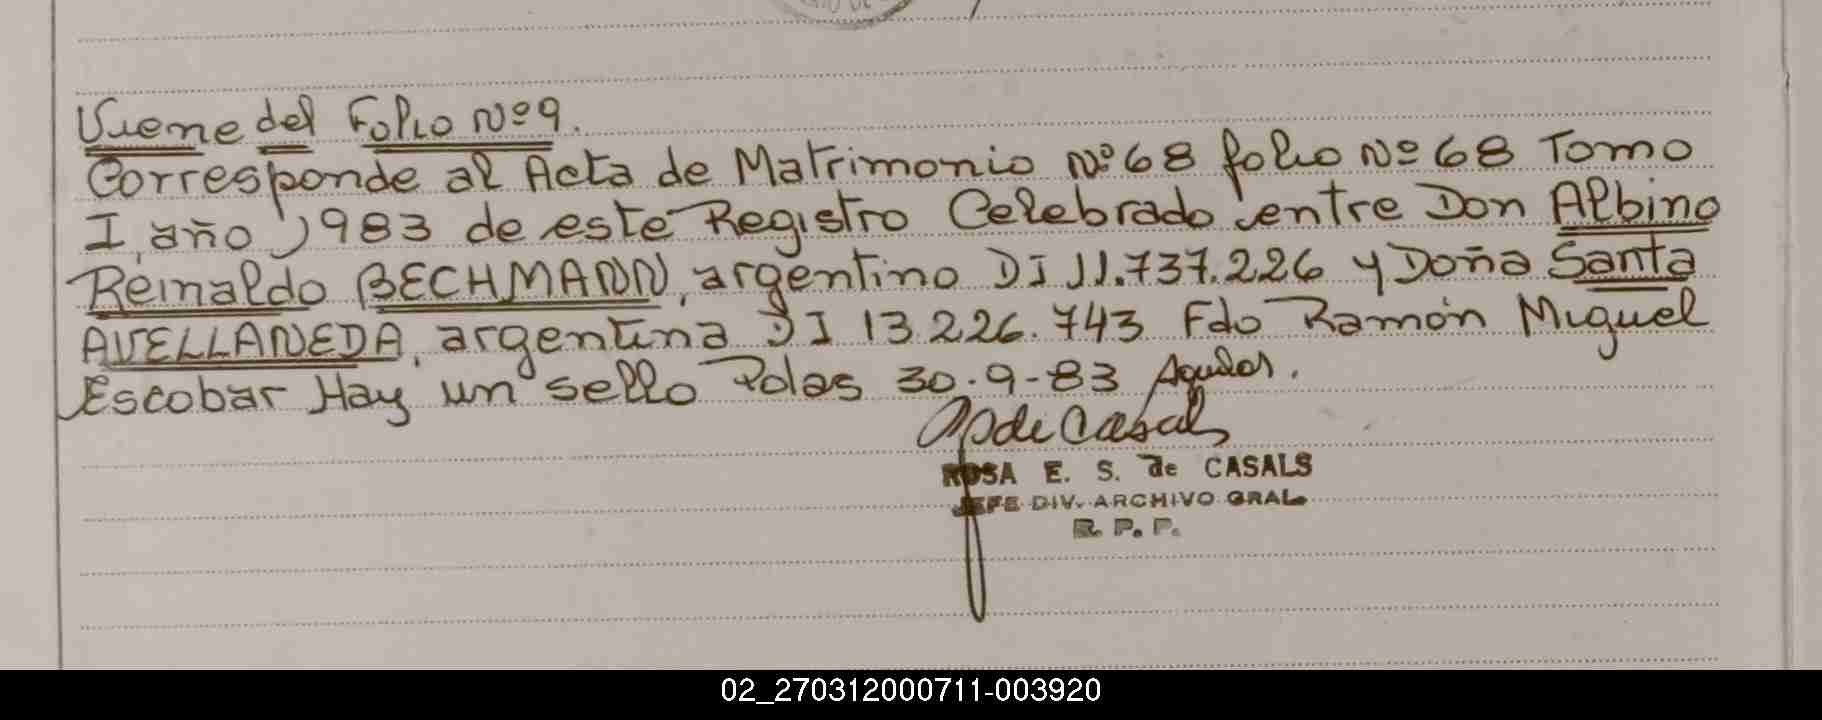 Viene del Folio Nº 9.
Corresponde al Acta de Matrimonio Nº 68 folio Nº 68 Tomo
I, año 1983 de este Registro Celebrado entre Don Albino
Reinaldo BECHMANN, argentino DI 11.737.226 y Doña Santa
AVELLANEDA, argentina DI 13.226.743 Fdo Ramón Miguel
Escobar Hay un sello Pdas 30-9-83
de Casals
ROSA E. S. de CASALS
JEFE DIV. ARCHIVO GRAL.
R. P. P.
02_270312000711-003920